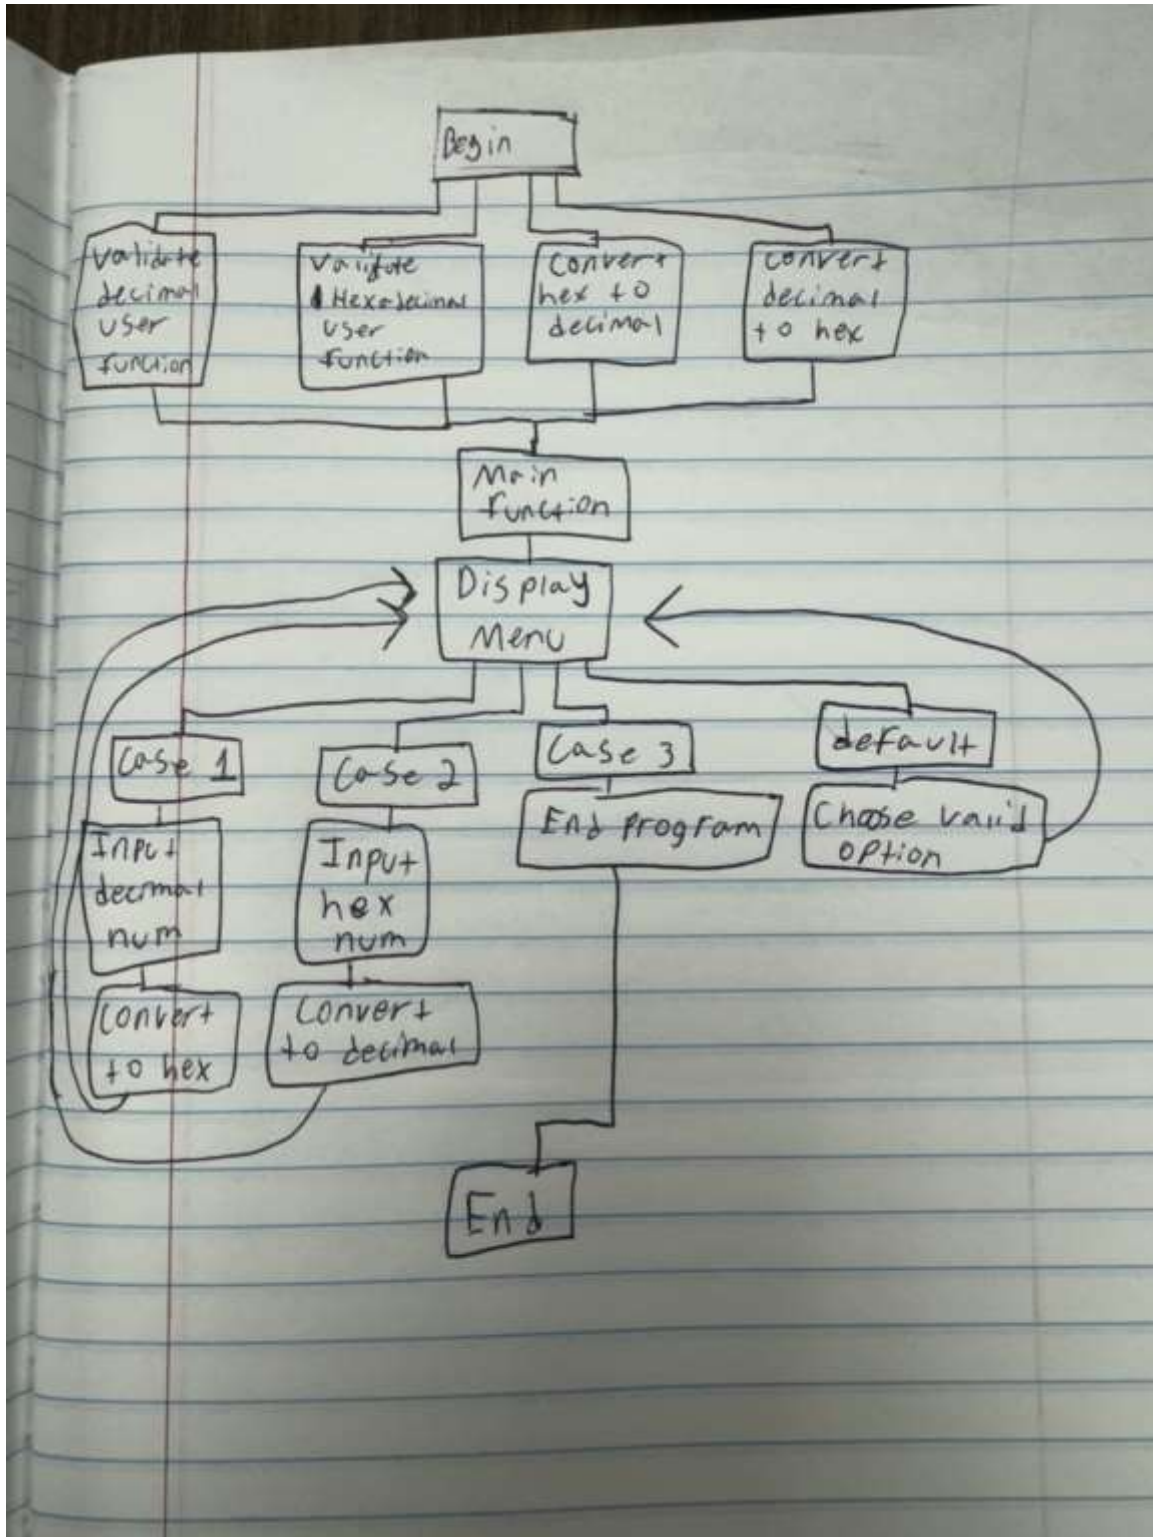 Begin
Validate
decimal
user
function
Validate
Hexadecimal
user
function
Convert
hex to
decimal
Convert
decimal
to hex
Main
function
Display
Menu
Case 1
Case 2
Case 3
default
Input
decimal
num
Input
hex
num
End program
Choose valid
option
Convert
to hex
Convert
to decimal
End